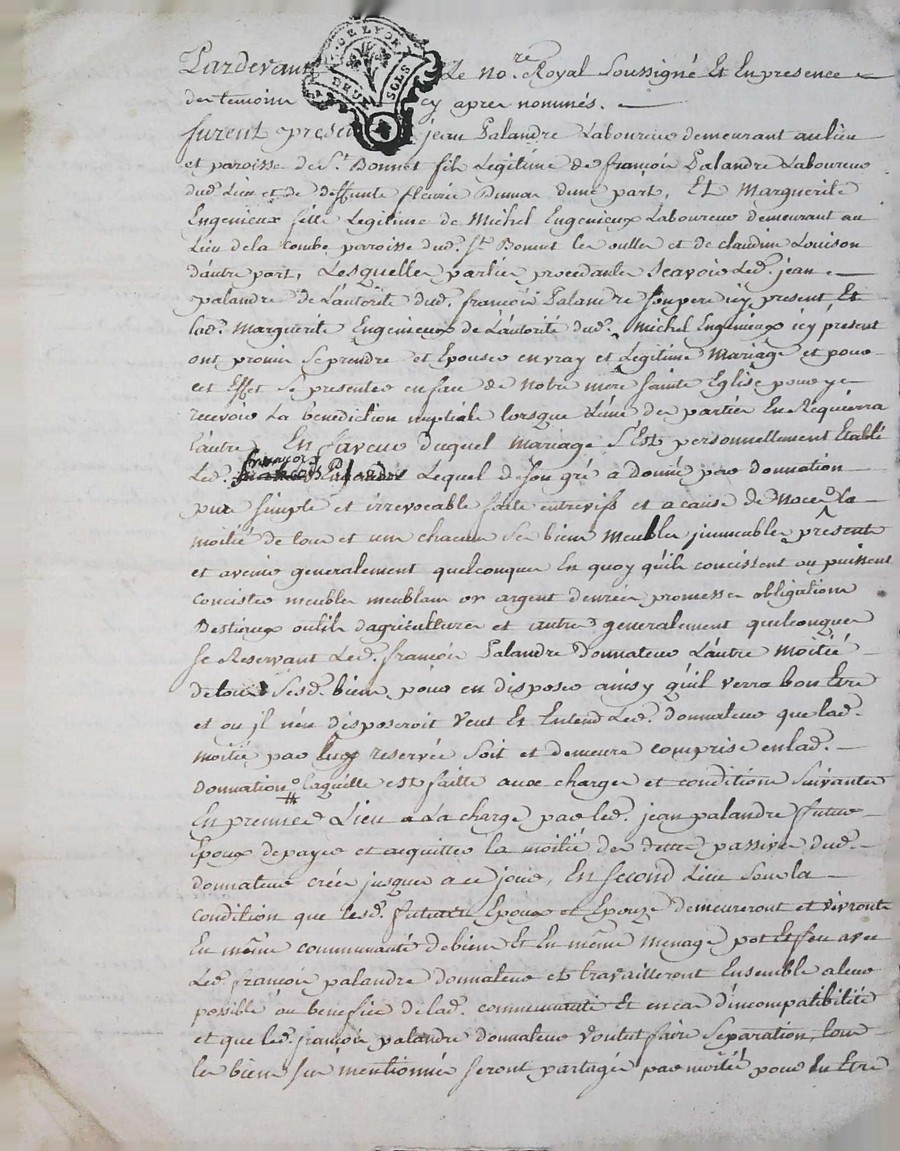 DE LYON
DEUX SOLS
Pardevant Le no.re Royal Soussigné Et En presence
des temoins cy apres nommés.
furent presens jean Palandre Laboureur demeurant au lieu
et paroisse de St. Bonnet fils Legitime de françois Palandre Laboureur
dud. Lieu et de deffunte fleurie Dumas dune part, Et Marguerite
Engenieux fille Legitime de Michel Engenieux Laboureur demeurant au
Lieu de la Combe paroisse dud. St. Bonnet les oulles et de claudine Louison
dautre part, Lesquelles parties procedantes Scavoir Led. jean
palandre de L'autorité dud. françois Palandre son pere icy present Et
lad. Marguerite Engenieux de L'autorité dud. Michel Engenieux icy présent
ont promis Se prendre et Epouser en vray et Legitime Mariage et pour
cet Effet Se presenter en face de Notre mere Sainte Eglise pour y
recevoir La bénédiction nuptiale lorsque L'une des parties En Requierra
l'autre, En faveur duquel mariage S'Est personnellement Etabli
Led. françois Palandre Lequel de son gré a donné par donnation
pure simple et irrevocable faite entrevifs et a cause de Noces la
moitié de tous et un chacuns Ses biens Meubles jmmeubles présents
et avenir generalement quelconques En quoy qu'ils concistent ou puissent
concister meubles meublans or argent denrées promesses obligations
Bestiaux outils dagriculture et autres generalement quelconques
se Reservant Led. françois Palandre donnateur L'autre moitié
de tous Sesd. biens, pour en disposer ainsy qu'il verra bon Etre
et ou jl n'en disposeroit Veut Et Entend Led. donnateur que lad.
moitié par luy reservée Soit et demeure comprise en lad.
donnation laquelle est faitte aux charges et conditions Suivantes
En premier Lieu a la charge par led. jean palandre futur
Epoux de payer et acquitter la moitié des dettes passives dud.
donnateur crées jusques a ce jour, En Second Lieu Sous la
condition que lesd. futurs Epoux et Epouze demeureront et vivront
En même communauté de biens Et En même menage pot Et feu avec
Led. françois palandre donnateur et travailleront Ensemble a leur
possible au benefice de lad. communauté Et en cas d'incompatibilité
et que led. françois palandre donnateur voulut faire Separation, tous
les biens sus mentionnés seront partagés par moitié pour En Etre